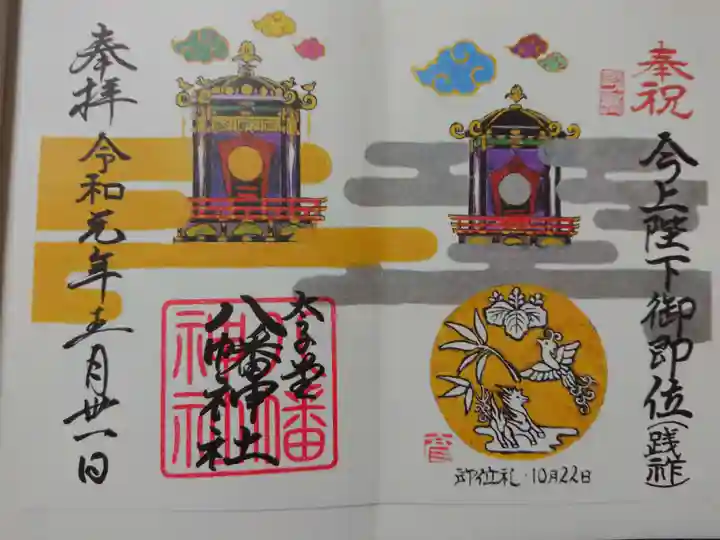 奉祝
今上陛下御即位(践祚)
即位礼・10月22日
太子堂
八幡神社
奉拝
令和元年五月卅一日